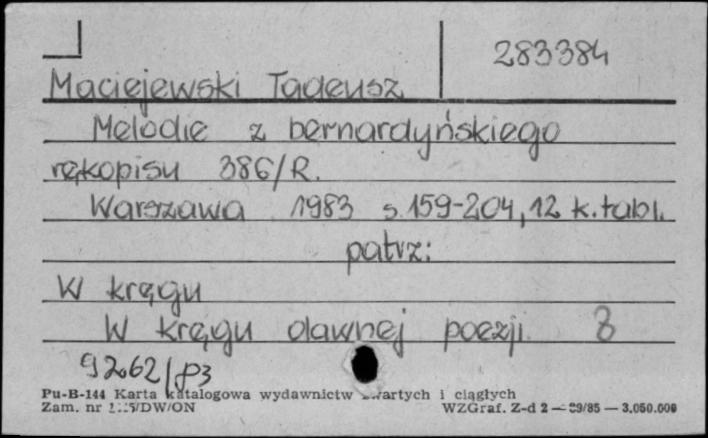 283384
Maciejewski Tadeusz
Melodie z bernardyńskiego
rękopisu 386/R.
Warszawa 1983 s.159-204, 12 k.tabl.
patrz:
W kręgu
W kręgu dawnej poezji 8
92062/83
Pu-B-144 Karta katalogowa wydawnictw i ciągłych
Zam. nr WZGraf. Z-d 2 — 3.050.000